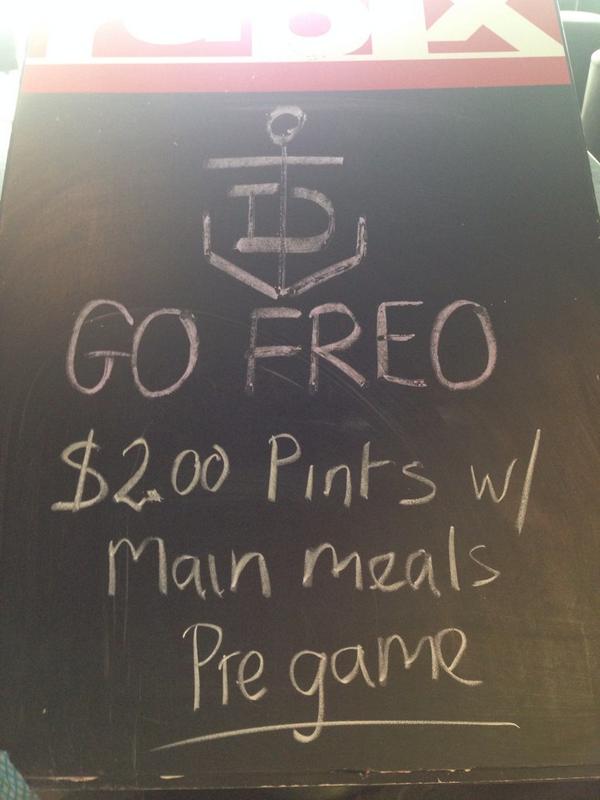 GO FREO
$2.00 Pints w/
Main meals
Pre game